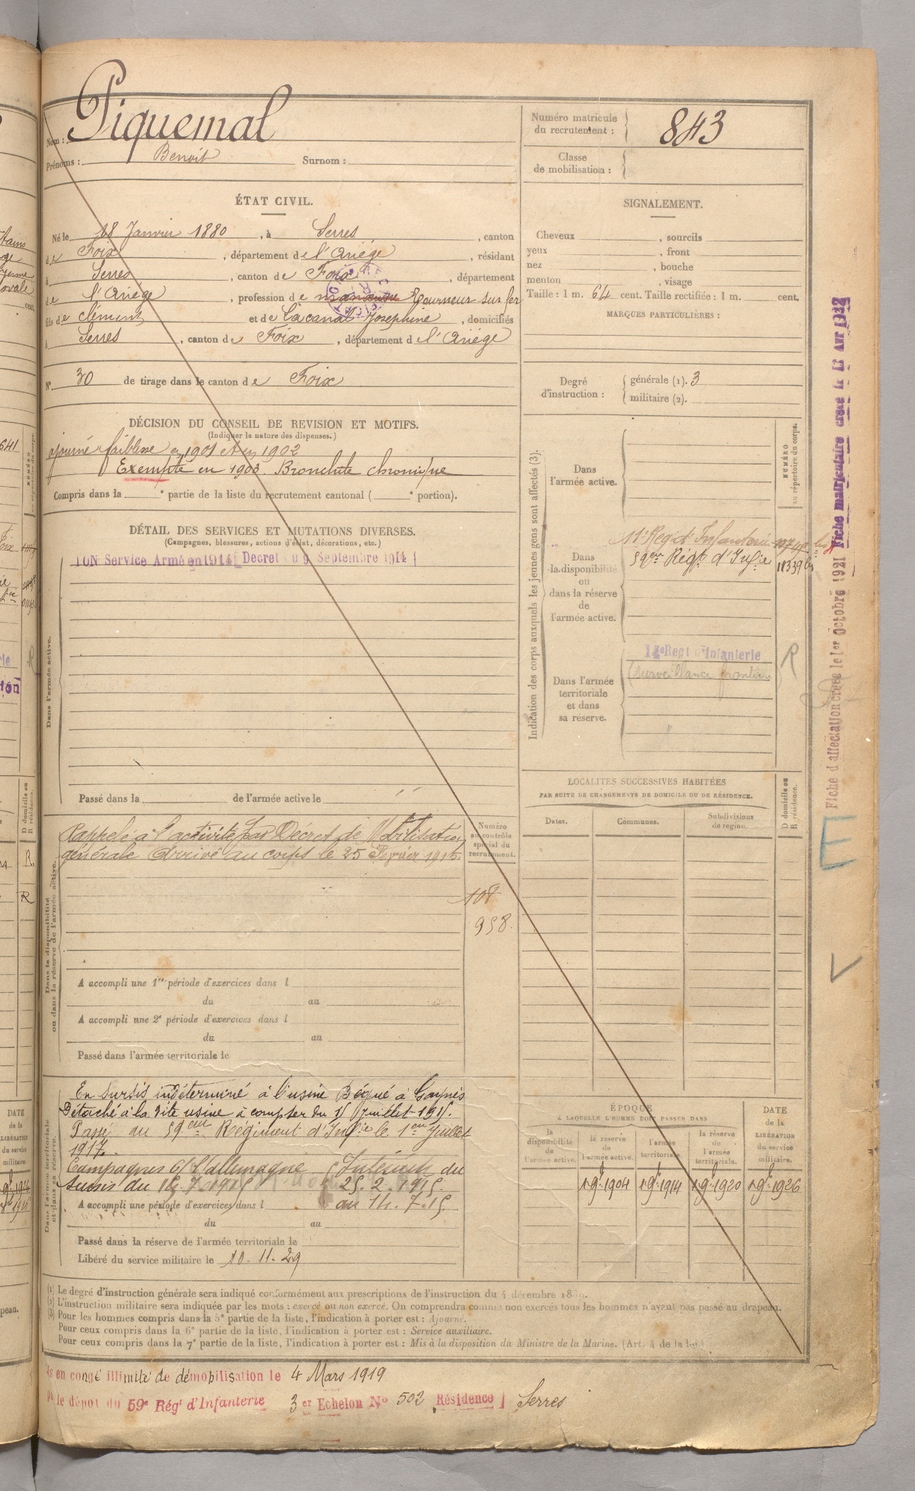 Nom : Piquemal
Prénoms : Benoit Surnom :
Numéro matricule du recrutement : 843
Classe de mobilisation :
ÉTAT CIVIL.
Né le 18 Janvier 1880, à Serres, canton
de Foix, département de l'Ariège, résidant
à Serres, canton de Foix, département
de l'Ariège, profession de Tourneur sur fer
fils de Clément et de Lacanal Josephine, domiciliés
à Serres, canton de Foix, département de l'Ariège
N° 30 de tirage dans le canton de Foix
SIGNALEMENT.
Cheveux , sourcils
yeux , front
nez , bouche
menton , visage
Taille : 1 m. 64 cent. Taille rectifiée : 1 m. cent.
MARQUES PARTICULIÈRES :
Degré d'instruction : générale (1). 3
militaire (2).
DÉCISION DU CONSEIL DE REVISION ET MOTIFS.
(Indiquer la nature des dispenses.)
ajourné faiblesse en 1901 et en 1902
Exempté en 1903. Bronchite chronique
Compris dans la ° partie de la liste du recrutement cantonal ( ° portion).
DÉTAIL DES SERVICES ET MUTATIONS DIVERSES.
(Campagnes, blessures, actions d'éclat, décorations, etc.)
Service Armé en 1914 Decret du 9 Septembre 1914
Dans l'armée active.
Passé dans la de l'armée active le
Indication des corps auxquels les jeunes gens sont affectés (3).
Dans l'armée active.
NUMÉRO au répertoire du corps.
Dans la disponibilité ou dans la réserve de l'armée active.
11e Régt Infanterie
59me Régt d'Infie
Dans l'armée territoriale et dans sa réserve.
Regt d'Infanterie
(surveillance frontière)
R
Fiche d'affectation créée le 1er Octobre 1921
Fiche matriculaire créée le
LOCALITÉS SUCCESSIVES HABITÉES
PAR SUITE DE CHANGEMENTS DE DOMICILE OU DE RÉSIDENCE.
Dates. Communes. Subdivisions de région. D domicile ou R résidence.
Dans la disponibilité ou dans la réserve de l'armée active.
Rappelé à l'activité par Décret de Mobilisation
générale Arrivé au corps le 25 Février 1915
Numéro au contrôle spécial du recrutement.
108
958.
A accompli une 1re période d'exercices dans l
du au
A accompli une 2e période d'exercices dans l
du au
Passé dans l'armée territoriale le
Dans l'armée territoriale et dans sa réserve.
En Sursis indéterminé à l'usine Bégué à
Détaché à la dite usine à compter du Juillet 1915.
Passé au 59eme Régiment d'Infie le 1er Juillet
1917.
Campagnes c/ l'allemagne Intérieur du
25.2.1915
au 14.7.15
A accompli une période d'exercices dans l
du au
Passé dans la réserve de l'armée territoriale le
Libéré du service militaire le 10.11.29
ÉPOQUE
À LAQUELLE L'HOMME DOIT PASSER DANS
la disponibilité de l'armée active. la réserve de l'armée active. l'armée territoriale. la réserve de l'armée territoriale. DATE de la LIBÉRATION du service militaire.
1904 1914 1920 1926
(1) Le degré d'instruction générale sera indiqué conformément aux prescriptions de l'instruction du 4 décembre
(2) L'instruction militaire sera indiquée par les mots : exercé ou non exercé. On comprendra comme non exercés tous les hommes n'ayant pas passé au drapeau.
(3) Pour les hommes compris dans la 5e partie de la liste, l'indication à porter est : Ajourné.
Pour ceux compris dans la 6e partie de la liste, l'indication à porter est : Service auxiliaire.
Pour ceux compris dans la 7e partie de la liste, l'indication à porter est : Mis à la disposition du Ministre de la Marine. (Art. 4 de la loi.)
en congé illimité de démobilisation le 4 Mars 1919
le dépôt du 59e Régt d'Infanterie 3er Echelon No 502 Résidence Serres